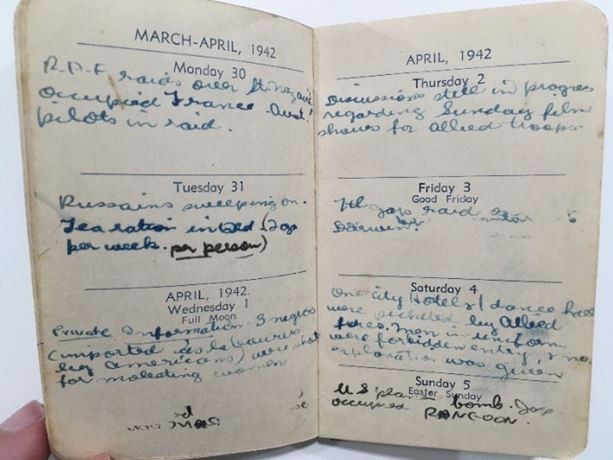 MARCH-APRIL, 1942
Monday 30
R.A.F raids over St. Nazaire
occupied France. Aust.
pilots in raid.
Tuesday 31
Russains sweeping on.
Tea ration in Qld (2 ozs
per week. per person)
APRIL, 1942.
Wednesday 1
Full Moon
Private Information 3 negros
(imported as labourers
by Americans) were shot
for molesting women
APRIL, 1942
Thursday 2
Discussions still in progress
regarding Sunday film
shows for allied troops
Friday 3
Good Friday
Jap raid
Darwin.
Saturday 4
One city Hotel &/ dance hall
were picketed by Allied
forces. Men in uniform
were forbidden entry, & no
explanation was given
Sunday 5
Easter Sunday
U S planes bomb. Jap
occupied RANGOON.